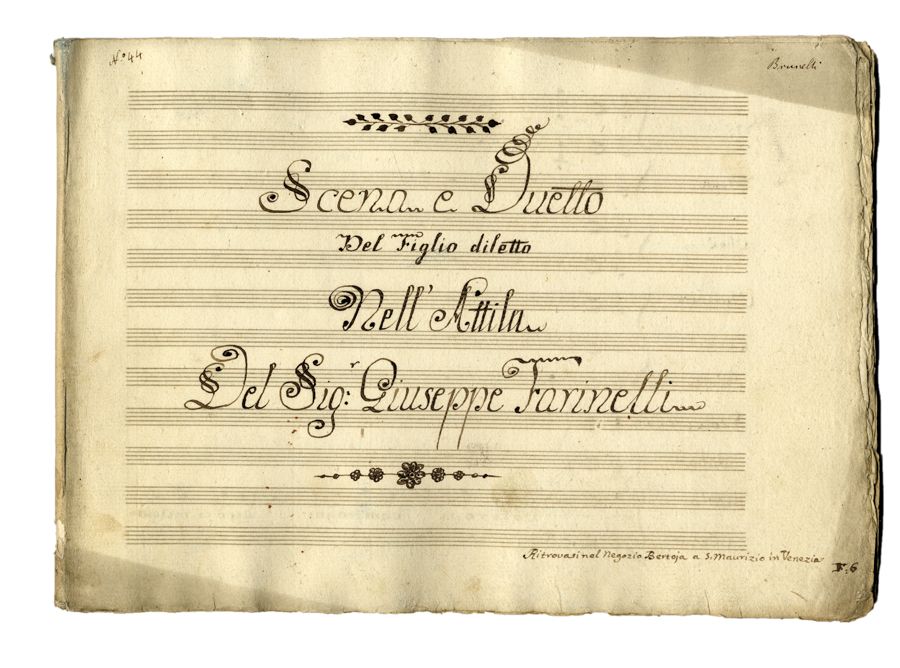 N.° 44
Brunelli
Scena e Duetto
Del Figlio diletto
Nell' Attila
Del Sig:r Giuseppe Farinelli
Ritrovasi nel Negozio Bertoja a S. Maurizio in Venezia
F. 6